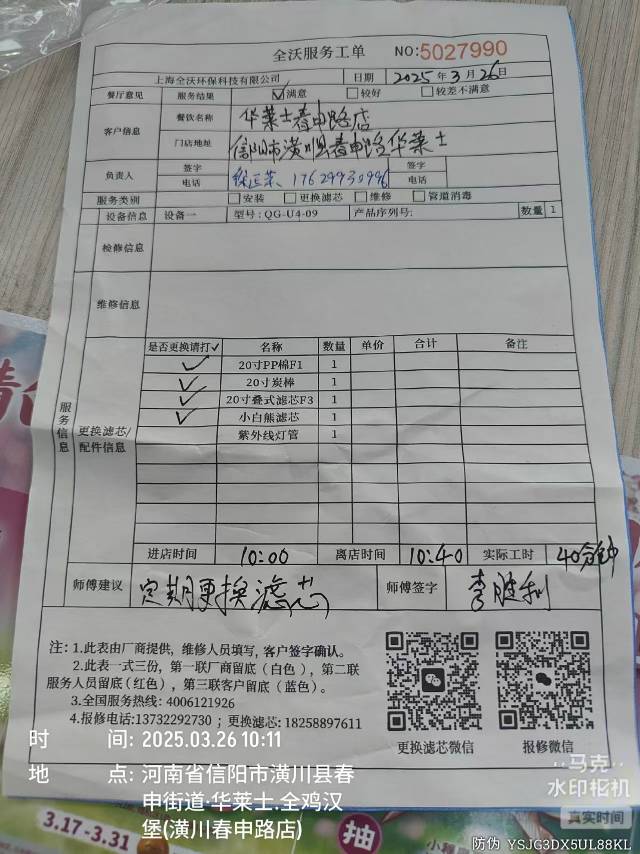 全沃服务工单 NO:5027990
上海全沃环保科技有限公司 日期 2025年3月26日
餐厅意见 服务结果 ☑满意 □较好 □较差不满意
客户信息 餐饮名称 华莱士春申路店
门店地址 信阳市潢川县春申路华莱士
负责人 签字 签字
电话 徐正荣 17629930996 电话
服务类别 □安装 □更换滤芯 □维修 □管道消毒
设备信息 设备一 型号:QG-U4-09 产品序列号: 数量 1
检修信息
维修信息
服务信息
更换滤芯/配件信息
是否更换请打✓ 名称 数量 单价 合计 备注
✓ 20寸PP棉F1 1
✓ 20寸炭棒 1
✓ 20寸叠式滤芯F3 1
✓ 小白熊滤芯 1
紫外线灯管 1
进店时间 10:00 离店时间 10:40 实际工时 40分钟
师傅建议 定期更换滤芯 师傅签字 李胜利
注: 1.此表由厂商提供, 维修人员填写, 客户签字确认。
2.此表一式三份, 第一联厂商留底(白色), 第二联
服务人员留底(红色), 第三联客户留底(蓝色)。
3.全国服务热线: 4006121926
4.报修电话:13732292730 ; 更换滤芯: 18258897611
更换滤芯微信 报修微信
时 间: 2025.03.26 10:11
地 点: 河南省信阳市潢川县春
申街道·华莱士.全鸡汉
堡(潢川春申路店)
马克
水印相机
真实时间
3.17-3.31
抽
防伪 YSJG3DX5UL88KL